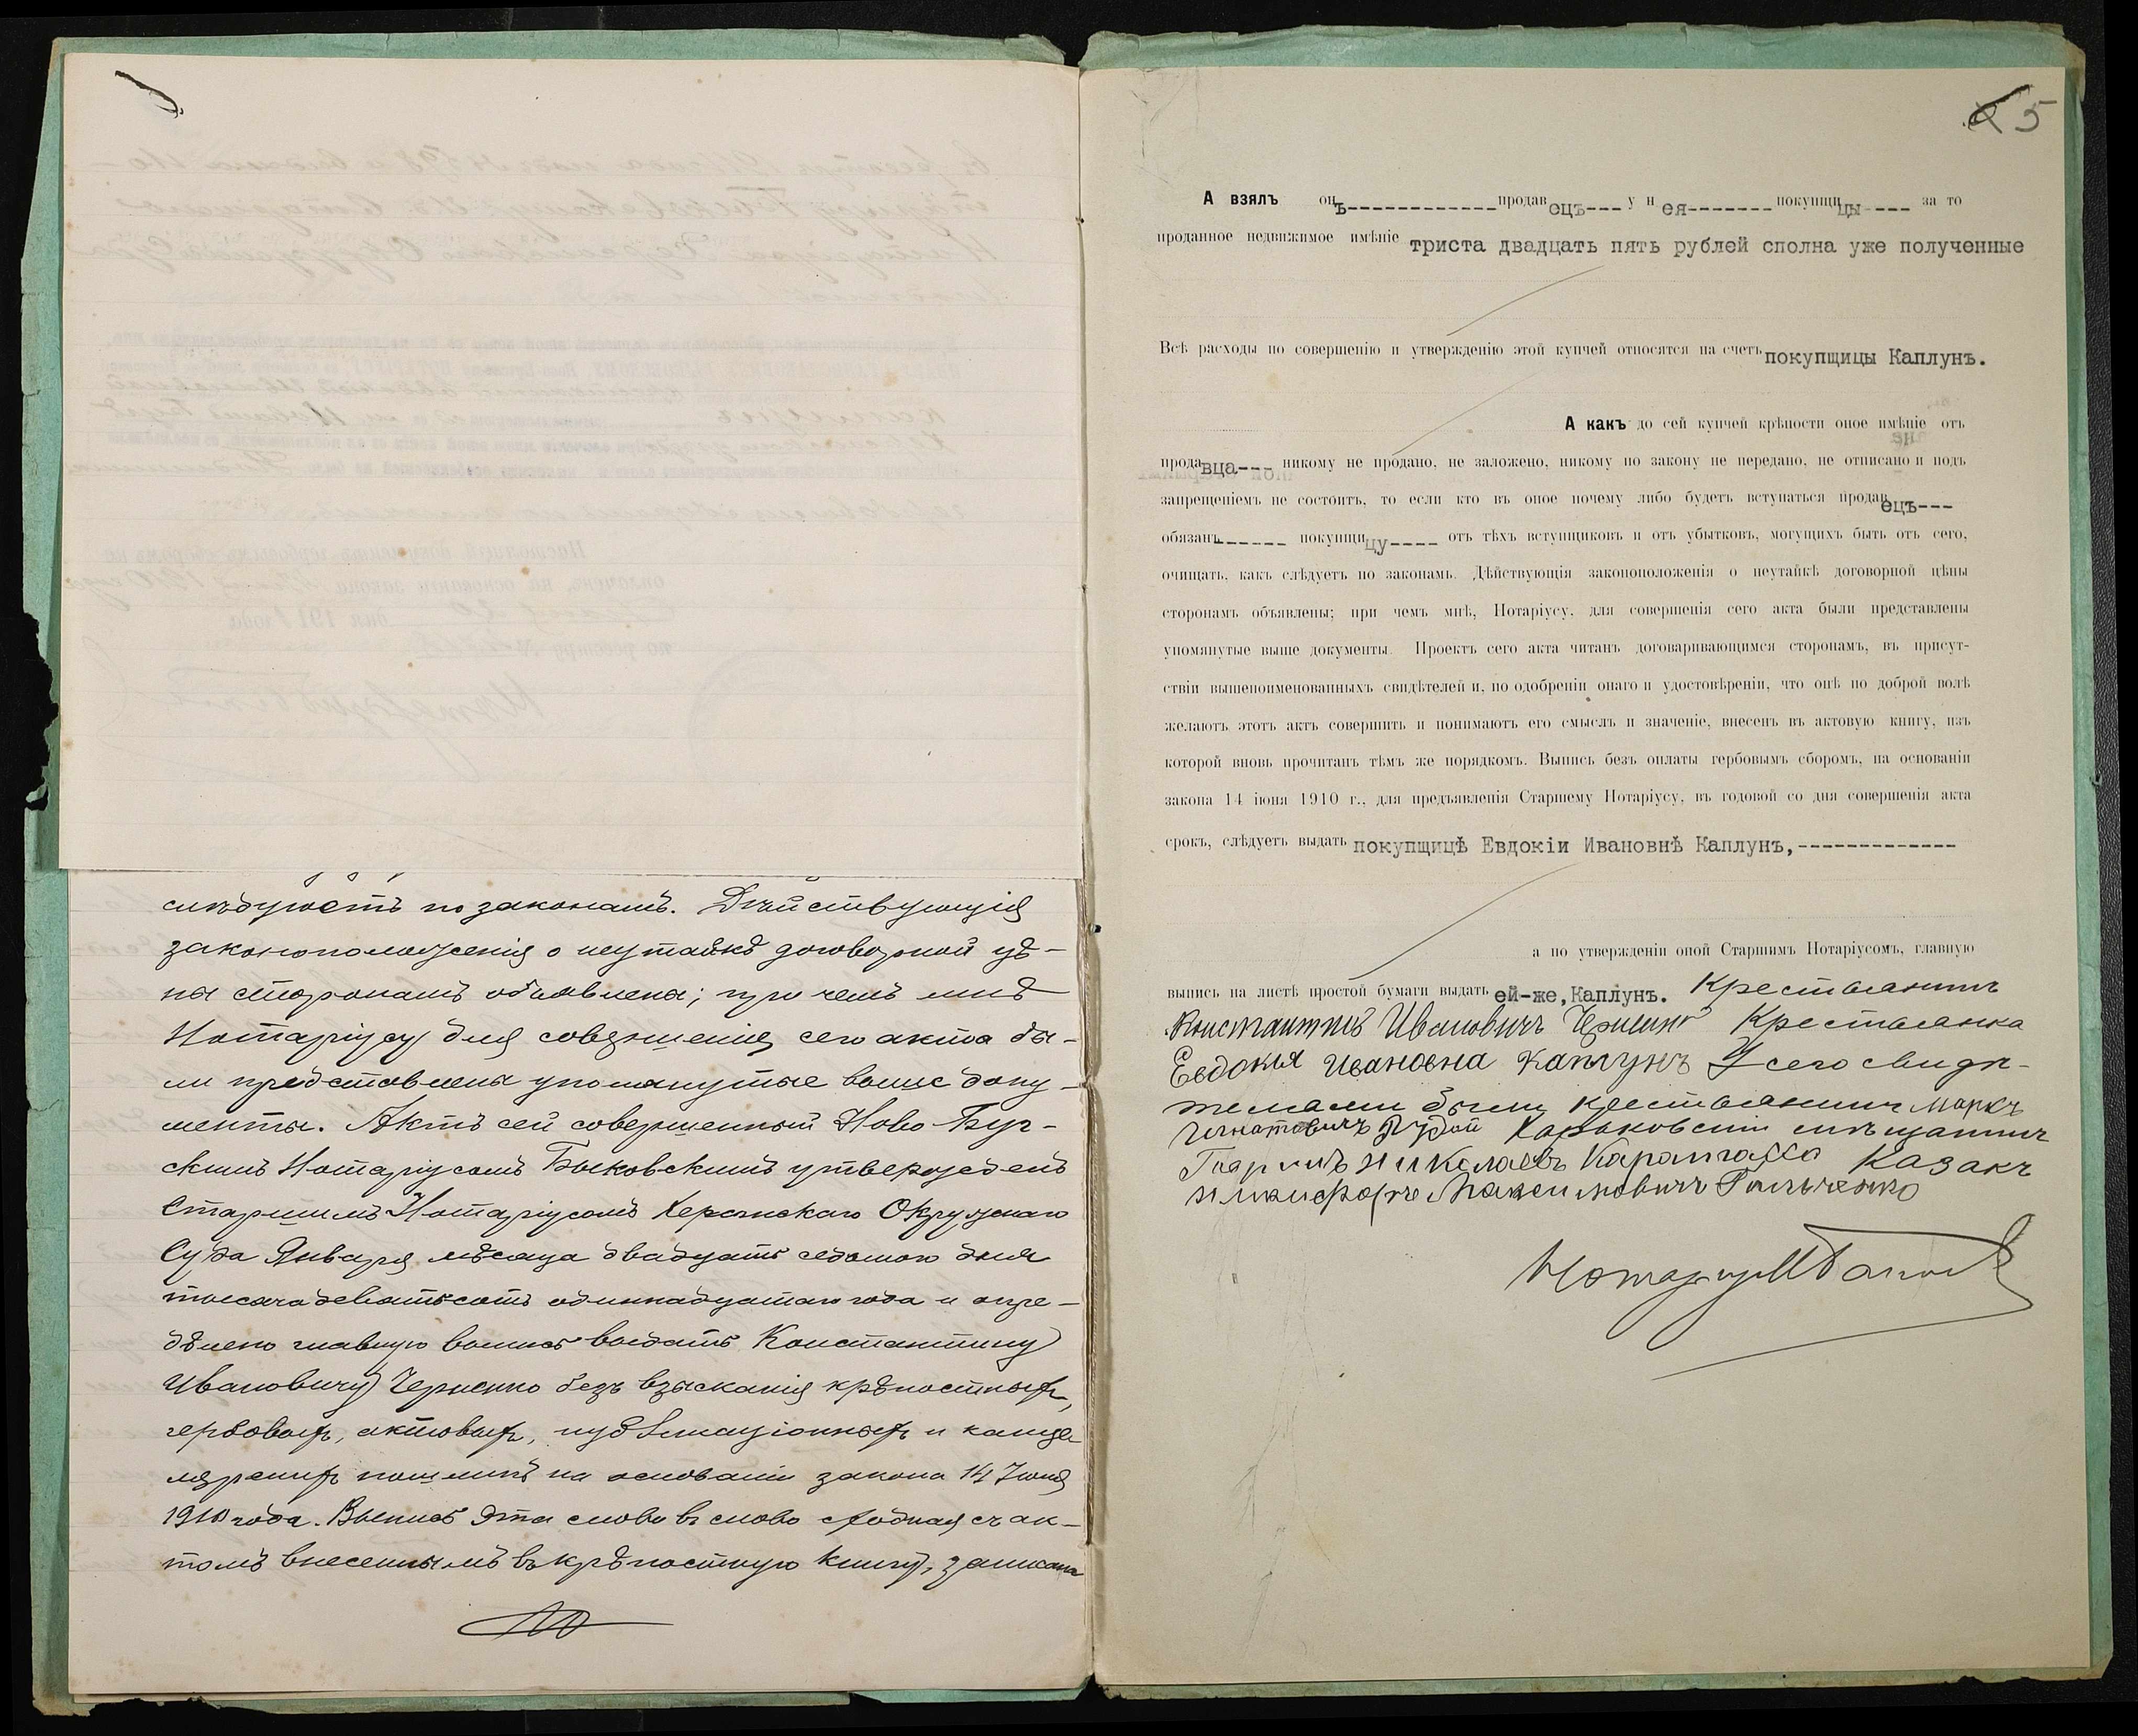 слѣдуетъ по законамъ. Дѣйствующія
законоположенія о неутайкѣ договорной цѣ-
ны сторонамъ объявлены; при чемъ мнѣ
Нотаріусу для совершенія сего акта бы-
ли представлены упомянутые выше доку-
менты. Актъ сей совершенный Ново-Буг-
скимъ Нотаріусомъ Быковскимъ утвержденъ
Старшимъ Нотаріусомъ Херсонскаго Окружнаго
Суда Января мѣсяца двадцать седьмого дня
тысяча девятьсотъ одиннадцатаго года и опре-
дѣлено главную выпись выдать Константину
Ивановичу Черненко безъ взысканія крѣпостныхъ,
гербовыхъ, актовыхъ, публикаціонныхъ и канце
лярскихъ пошлинъ на основаніи закона 14 Іюня
1910 года. Выпись эта слово въ слово сходная съ ак-
томъ внесеннымъ въ крѣпостную книгу, записана
5
А взялъ онъ продавецъ--- у нея покупщицы---- за то
проданное недвижимое имѣніе триста двадцать пять рублей сполна уже полученные
Всѣ расходы по совершенію и утвержденію этой купчей относятся на счетъ покупщицы Каплунъ.
А какъ до сей купчей крѣпости оное имѣніе отъ
продавца--- никому не продано, не заложено, никому по закону не передано, не отписано и подъ
запрещеніемъ не состоитъ, то если кто въ оное почему либо будетъ вступаться продавецъ---
обязанъ------ покупщицу---- отъ тѣхъ вступщиковъ и отъ убытковъ, могущихъ быть отъ сего,
очищать, какъ слѣдуетъ по законамъ. Дѣйствующія законоположенія о неутайкѣ договорной цѣны
сторонамъ объявлены; при чемъ мнѣ, Нотаріусу, для совершенія сего акта были представлены
упомянутые выше документы. Проектъ сего акта читанъ договаривающимся сторонамъ, въ присут-
ствіи вышепоименованныхъ свидѣтелей и, по одобреніи онаго и удостовѣреніи, что онѣ по доброй волѣ
желаютъ этотъ актъ совершить и понимаютъ его смыслъ и значеніе, внесенъ въ актовую книгу, изъ
которой вновь прочитанъ тѣмъ же порядкомъ. Выпись безъ оплаты гербовымъ сборомъ, на основаніи
закона 14 іюня 1910 г., для предъявленія Старшему Нотаріусу, въ годовой со дня совершенія акта
срокъ, слѣдуетъ выдать покупщицѣ Евдокіи Ивановнѣ Каплунъ,-------------
а по утвержденіи оной Старшимъ Нотаріусомъ, главную
выпись на листѣ простой бумаги выдать ей-же, Каплунъ. Крестьянинъ
Константинъ Ивановичъ Черненко Крестьянка
Евдокия Ивановна Каплунъ У сего свидѣ-
телями были крестьянинъ Маркъ
Игнатовичъ Харьковскій мѣщанинъ
Николаевъ Казакъ
Никифоръ Максимовичъ
Нотаріусъ